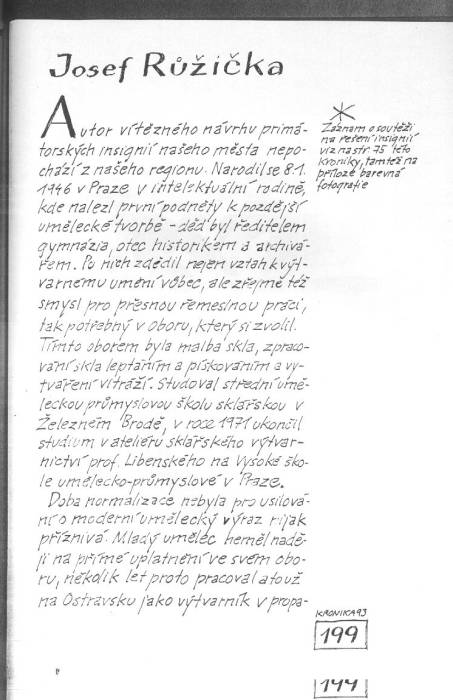 Josef Růžička
Autor vítězného návrhu primá-
torských insignií našeho města nepo-
chází z našeho regionu. Narodil se 8.1.
1946 v Praze v intelektuální rodině,
kde nalezl první podněty k pozdější
umělecké tvorbě - děd byl ředitelem
gymnázia, otec historikem a archivá-
řem. Po nich zdědil nejen vztah k výt-
varnému umění vůbec, ale zřejmě též
smysl pro přesnou řemeslnou práci,
tak potřebný v oboru, který si zvolil.
Tímto oborem byla malba skla, zpraco-
vání skla leptáním a pískováním a vy-
tváření vitráží. Studoval střední umě-
leckou průmyslovou školu sklářskou v
Železném Brodě, v roce 1971 ukončil
studium v ateliéru sklářského výtvar-
nictví prof. Libenského na Vysoké ško-
le umělecko-průmyslové v Praze.
Doba normalizace nebyla pro usilová-
ní o moderní umělecký výraz nijak
příznivá. Mladý umělec neměl nadě-
ji na přímé uplatnění ve svém obo-
ru, několik let proto pracoval a to už
na Ostravsku jako výtvarník v propa-
*
Záznam o soutěži
na řešení insignií
viz na str. 75 této
kroniky, tamtéž na
příloze barevná
fotografie
KRONIKA 93
199
144